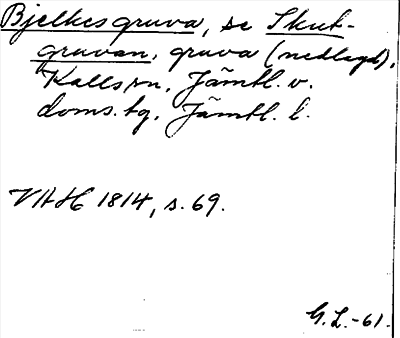 Bjelkesgruva, se Skut-
gruvan, gruva (nedlagd),
Kalls sn, Jämtl. v.
doms. tg, Jämtl. l.
VAH 1814, s. 69.
G.L.-61.